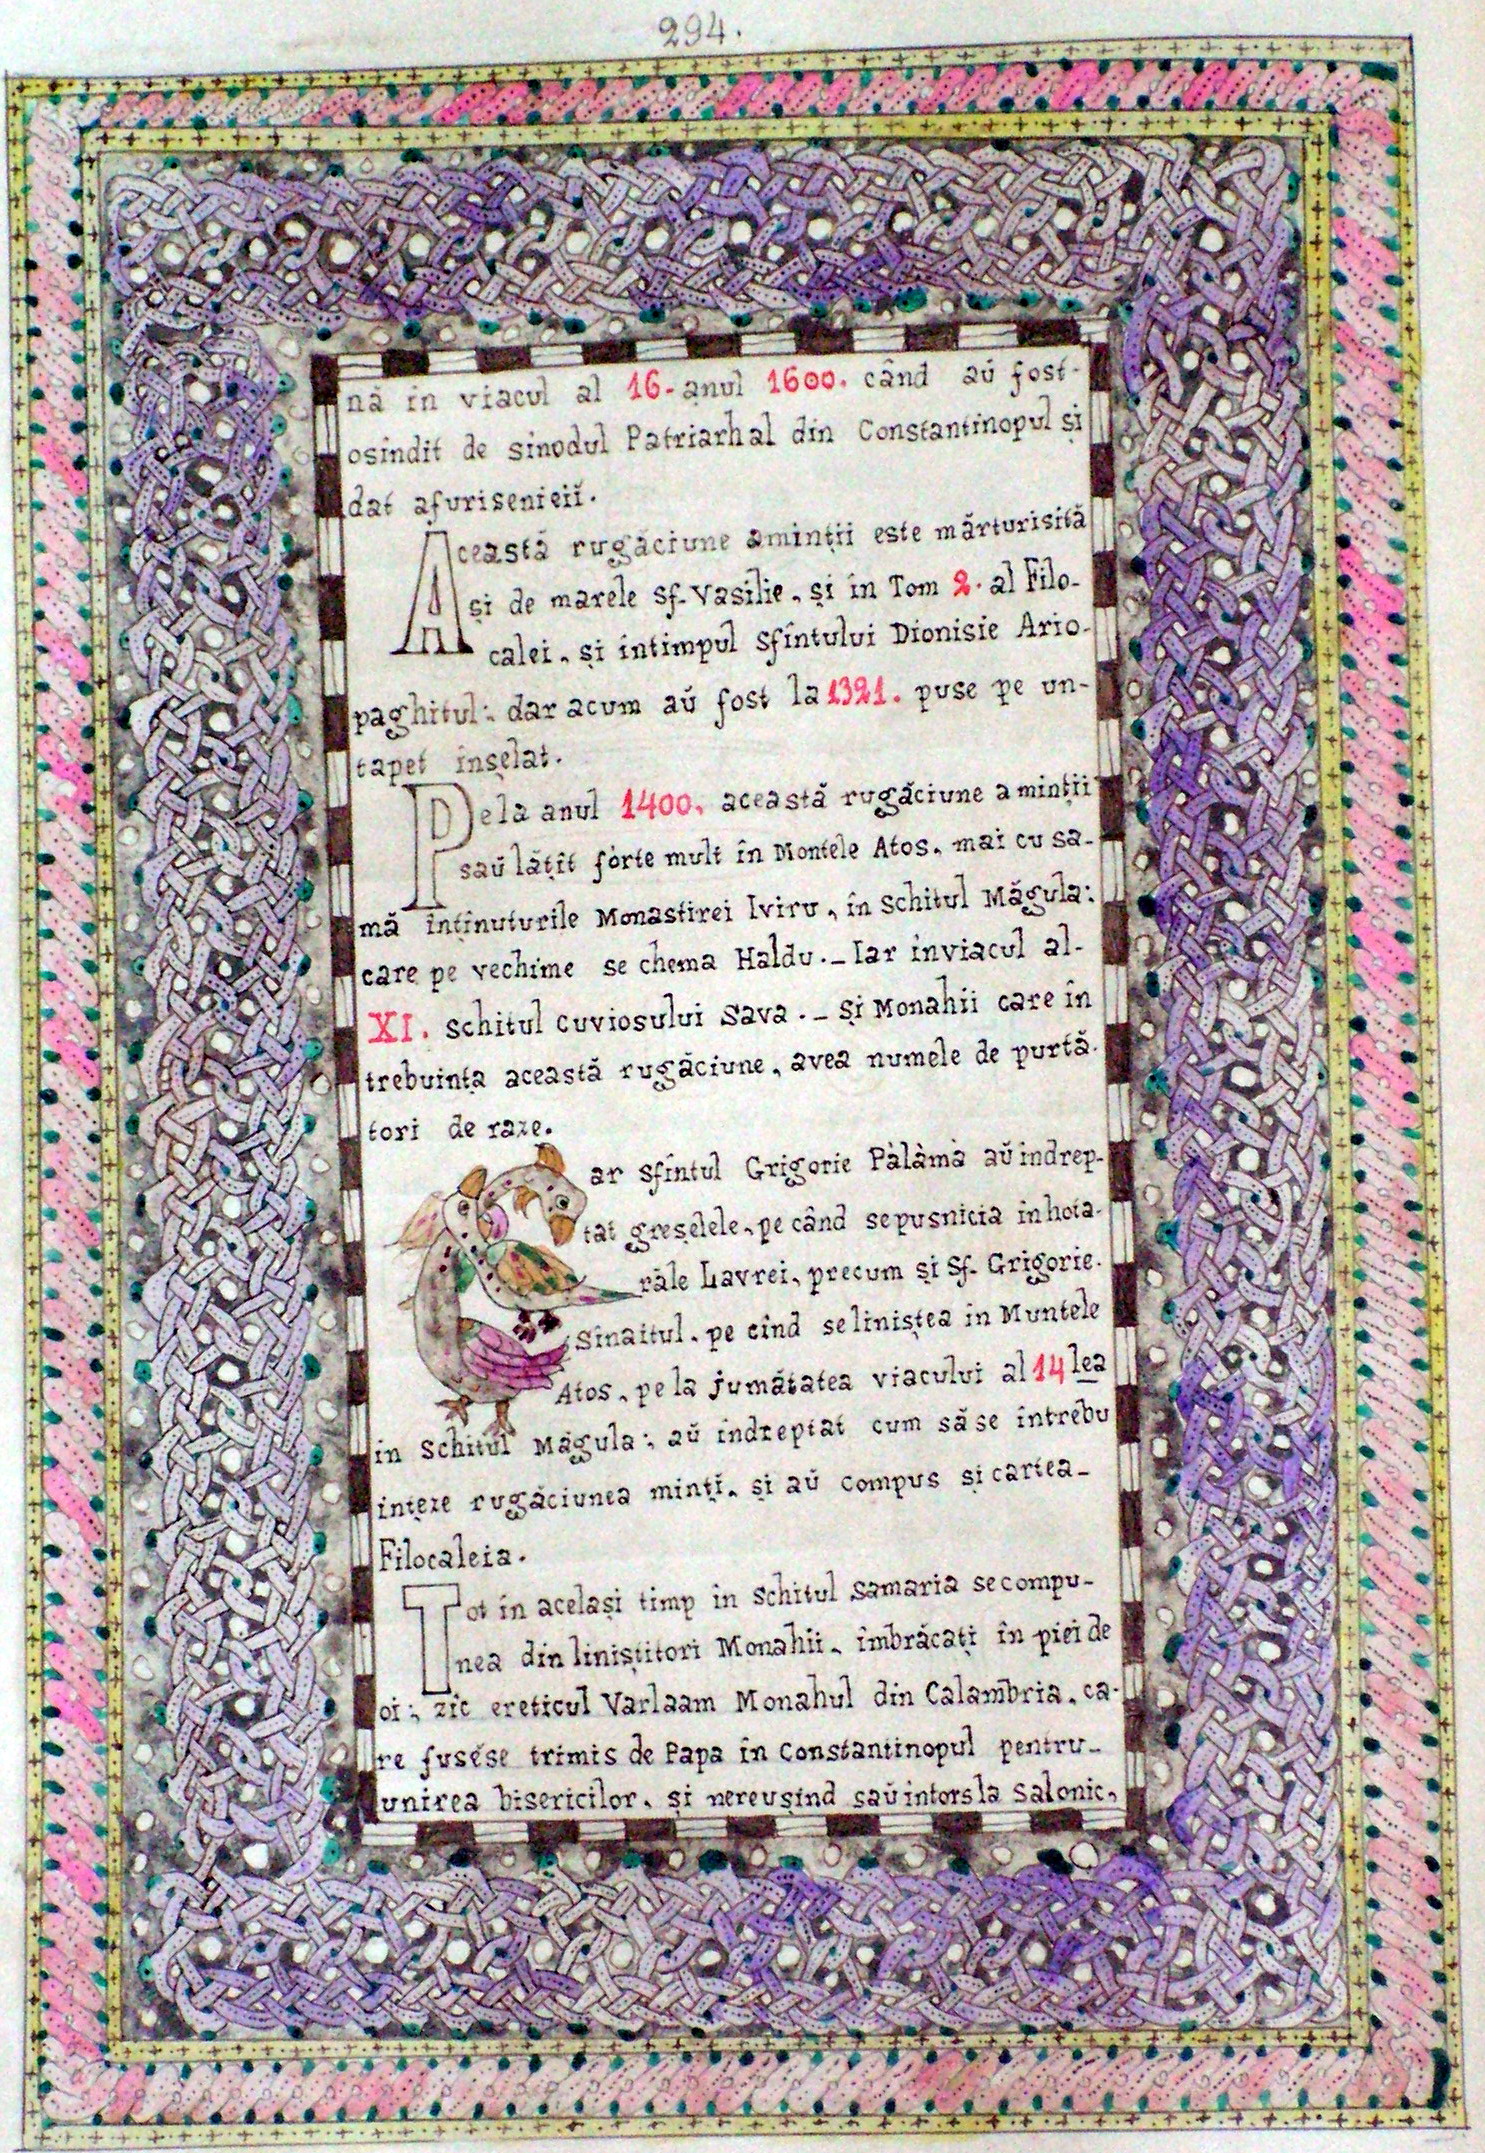 294.
nă in viacul al 16-anul 1600. când aŭ fost-
osindit de sinodul Patriarhal din Constantinopul și
dat afuriseniei̇̆.
Această rugăciune aminții este mărturisită
și de marele sf. Vasilie, și în Tom 2. al Filo-
calei, și intimpul sfîntului Dionisie Ario-
paghitul: dar acum aŭ fost la 1321. puse pe un-
tapet înșelat.
Pela anul 1400, această rugăciune a minții
saŭ lățit fórte mult în Montele Atos, mai cu sa-
mă inținuturile Monastirei Iviru, în Schitul Măgula:
care pe vechime se chema Haldu._ Iar inviacul al-
XI. schitul cuviosului Sava._ și Monahii care în
trebuința această rugăciune, avea numele de purtă-
tori de raze.
ar sfîntul Grigorie Pàlàmà aŭ indrep-
tat greșelele, pe când sepusnicia in hota-
răle Lavrei, precum și Sf. Grigorie.
Sinaitul, pe cînd seliniștea în Muntele
Atos, pe la jumătatea viacului al 14 lea
in Schitul Măgula:, aŭ indreptat cum să se întrebu
ințeze rugăciunea minți, și aŭ compus și cartea_
Filocaleia.
Tot în același timp în Schitul Samaria secompu-
nea din liniștitori Monahii, îmbrăcați în piei de
oi:, zic ereticul Varlaam Monahul din Calambria, ca-
re fusĕse trimis de Papa în Constantinopul pentru_
unirea bisericilor, și nereușind saŭ intors la Salonic,